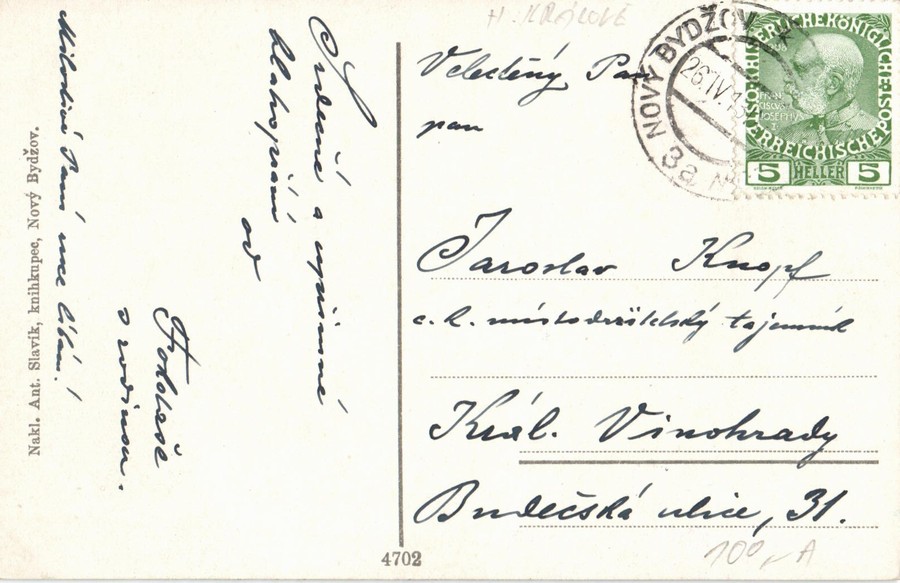 H. KRÁLOVÉ
Velectěný Pan
pan
Jaroslav Knopf
c. k. místodržitelský tajemník
Král. Vinohrady
Budečská ulice, 31.
Srdečné a upřímné
blahopřání
od
s rodinou.
Milostivé Paní ruce líbám!
Nakl. Ant. Slavík, knihkupec, Nový Bydžov.
4702
100,- A
NOVÝ BYDŽOV
26.IV.1
3a
1908
FRAN
CISCVS
JOSEPHVS
KAISERLICHE KÖNIGLICHE
OESTERREICHISCHE POST
5 HELLER 5